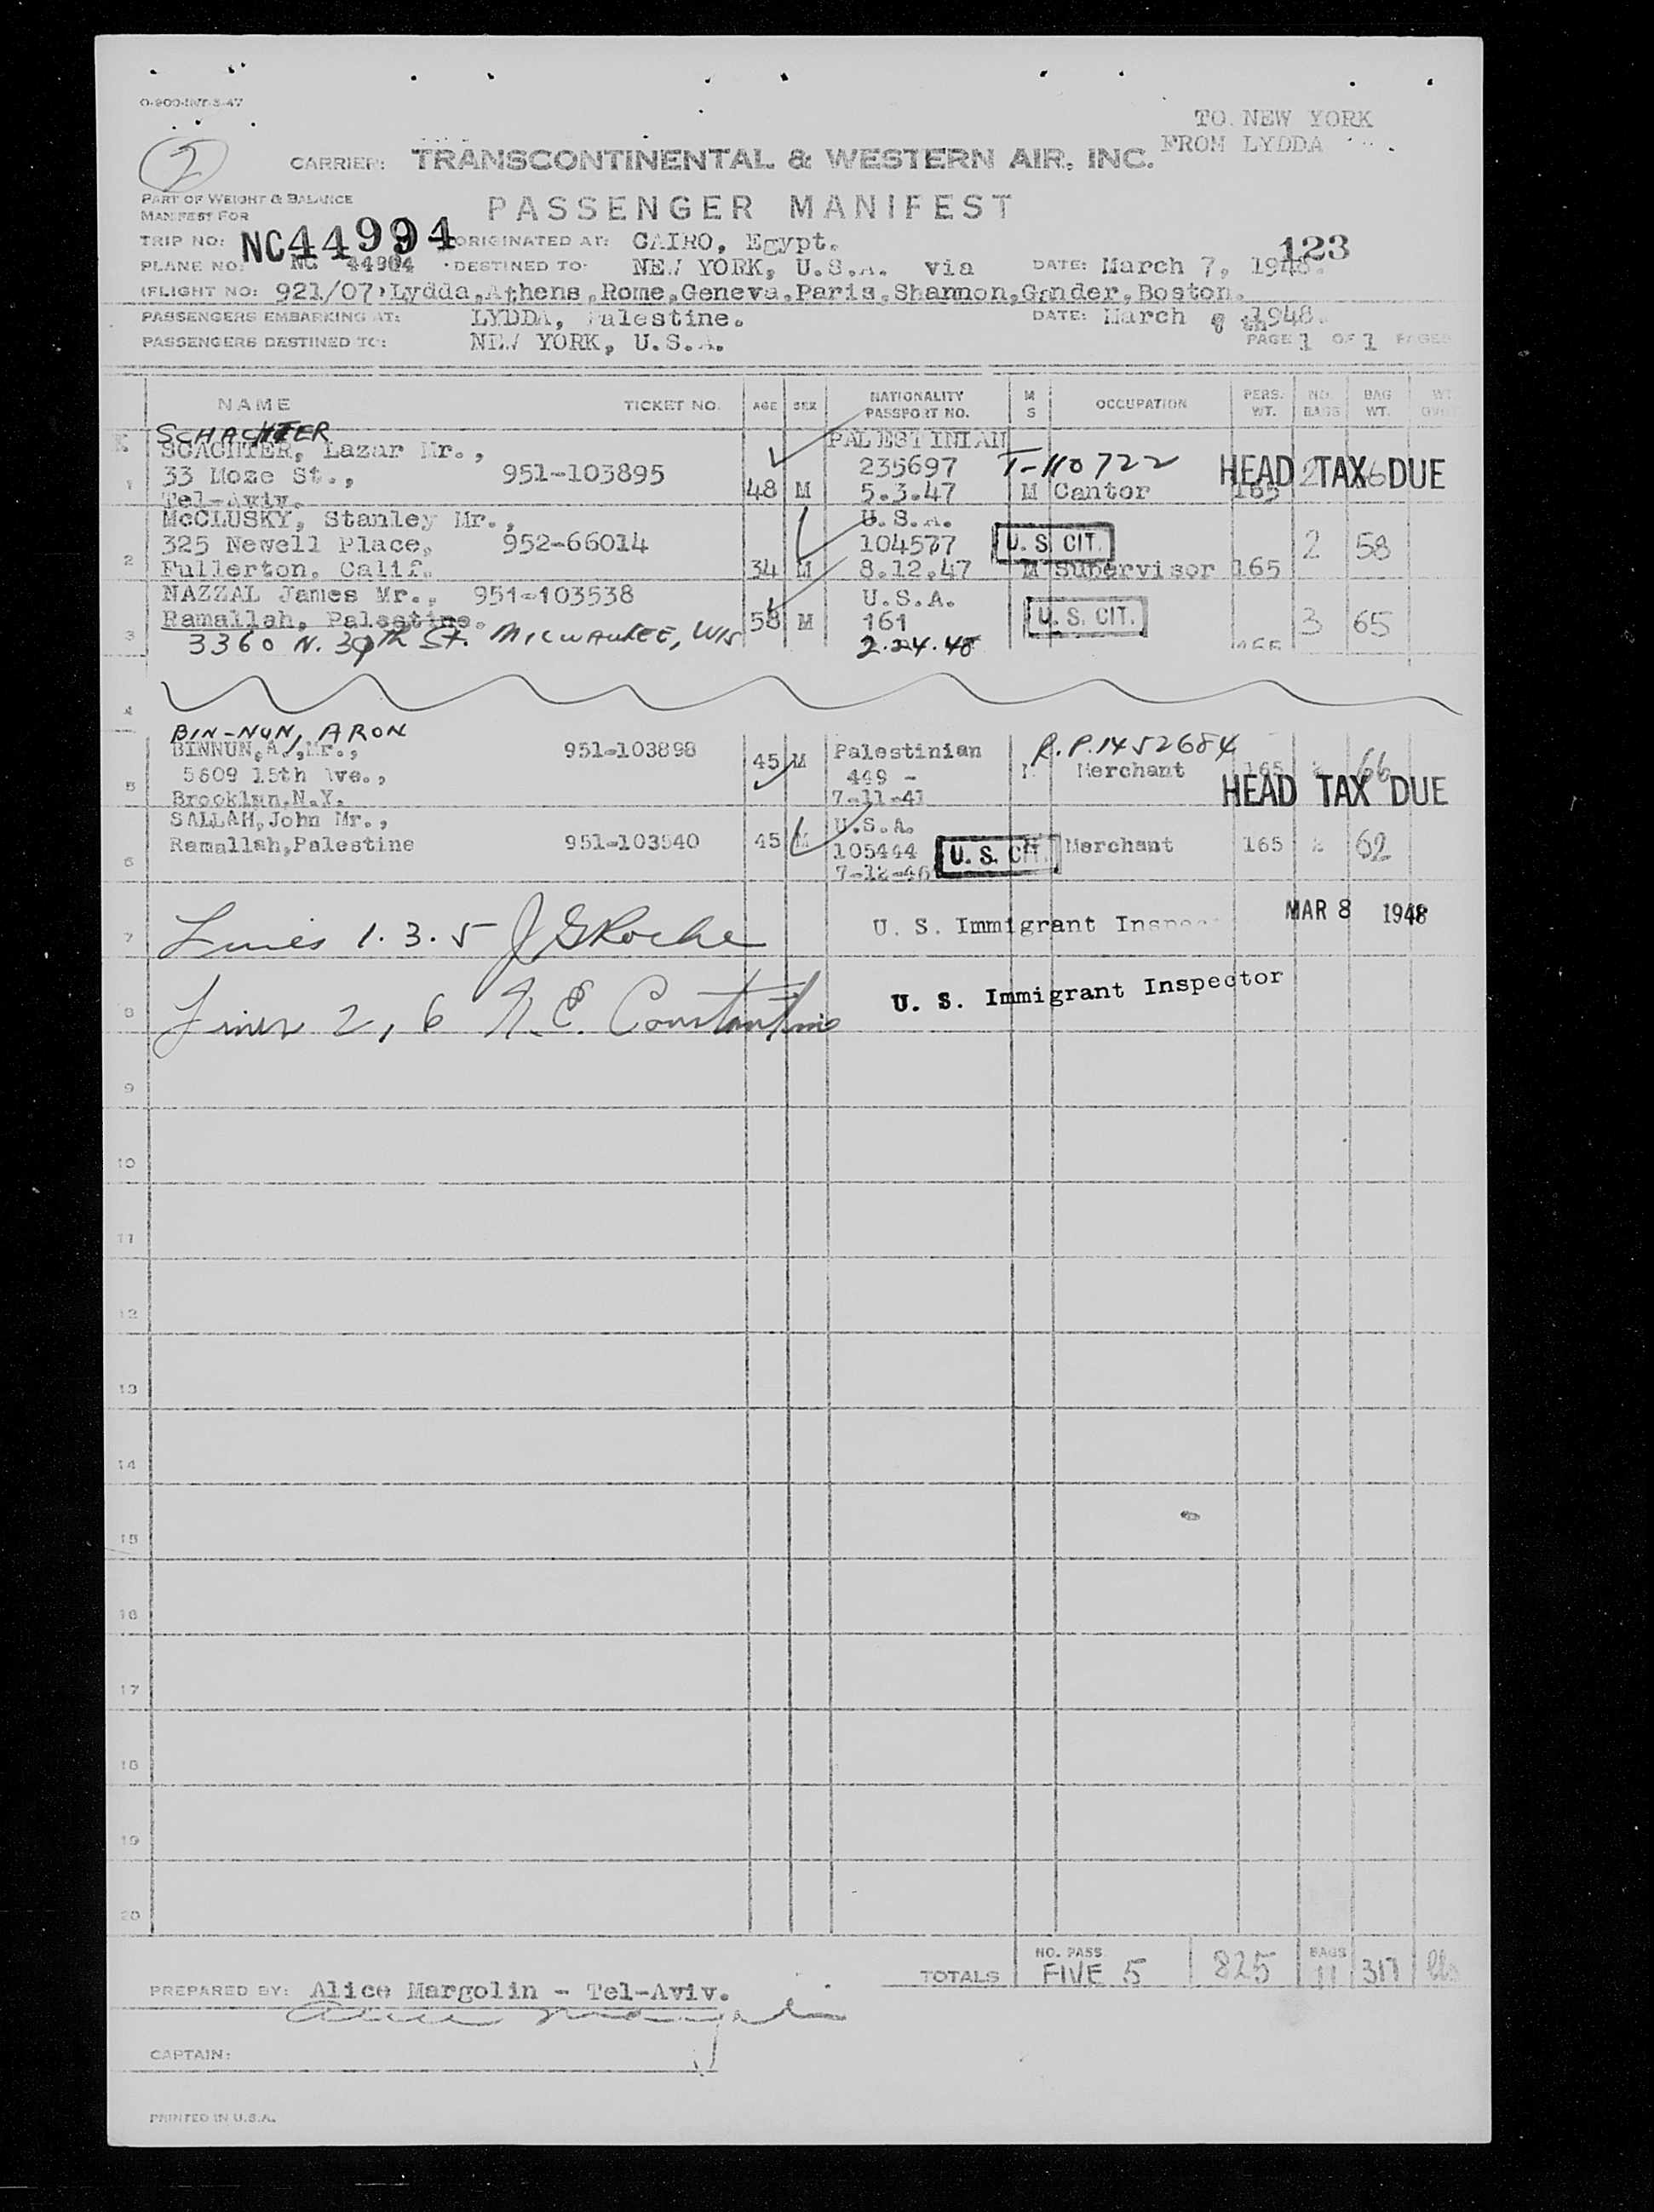 O-900-INT-5-47
TO NEW YORK
FROM LYDDA
2
CARRIER: TRANSCONTINENTAL & WESTERN AIR, INC.
PART OF WEIGHT & BALANCE
MANIFEST FOR
PASSENGER MANIFEST
TRIP NO: NC44994 ORIGINATED AT: CAIRO, Egypt.
123
PLANE NO: NC 44904 DESTINED TO: NEW YORK, U.S.A. via DATE: March 7, 1948.
(FLIGHT NO: 921/07 Lydda, Athens, Rome, Geneva, Paris, Shannon, Gander, Boston.
PASSENGERS EMBARKING AT: LYDDA, Palestine. DATE: March 8 th 1948.
PASSENGERS DESTINED TO: NEW YORK, U.S.A. PAGE 1 OF 1 PAGES
NAME TICKET NO. AGE SEX NATIONALITY PASSPORT NO. M S OCCUPATION PERS. WT. NO. BAGS BAG WT. WT
SCHACHTER
SCACHTER, Lazar Mr., PALESTINIAN
33 Moze St., 951-103895 235697 T-110722 HEAD TAX DUE
1 Tel-Aviv. 48 M 5.3.47 M Cantor 165
McCLUSKY, Stanley Mr., U.S.A.
325 Newell Place, 952-66014 104577 U. S. CIT. 2 58
2 Fullerton. Calif. 34 M 8.12.47 M Supervisor 165
NAZZAL James Mr., 951-103538 U.S.A.
Ramallah, Palestine. 58 M 161 U. S. CIT. 3 65
3 3360 N. 39th St. MILWAUKEE, WIS 2.24.48
4
BIN-NUN, ARON
BINNUN, A., Mr., 951-103898 45 M Palestinian R.P.1452684
5609 15th Ave., 449 - Merchant 165 66
5 Brooklyn, N.Y. 7-11-41 HEAD TAX DUE
SALLAH, John Mr., U.S.A.
Ramallah, Palestine 951-103540 45 M 105444 U. S. CIT. Merchant 165 2 62
6 7-12-46
MAR 8 1948
7 Lines 1. 3. 5 J G Roche U. S. Immigrant
8 Lines 2, 6 N. E. Constantino U. S. Immigrant Inspector
9
10
11
12
13
14
15
16
17
18
19
20
TOTALS NO. PASS FIVE 5 825 BAGS 11 317 lbs
PREPARED BY: Alice Margolin - Tel-Aviv.
Alice Margolin
CAPTAIN:
PRINTED IN U.S.A.